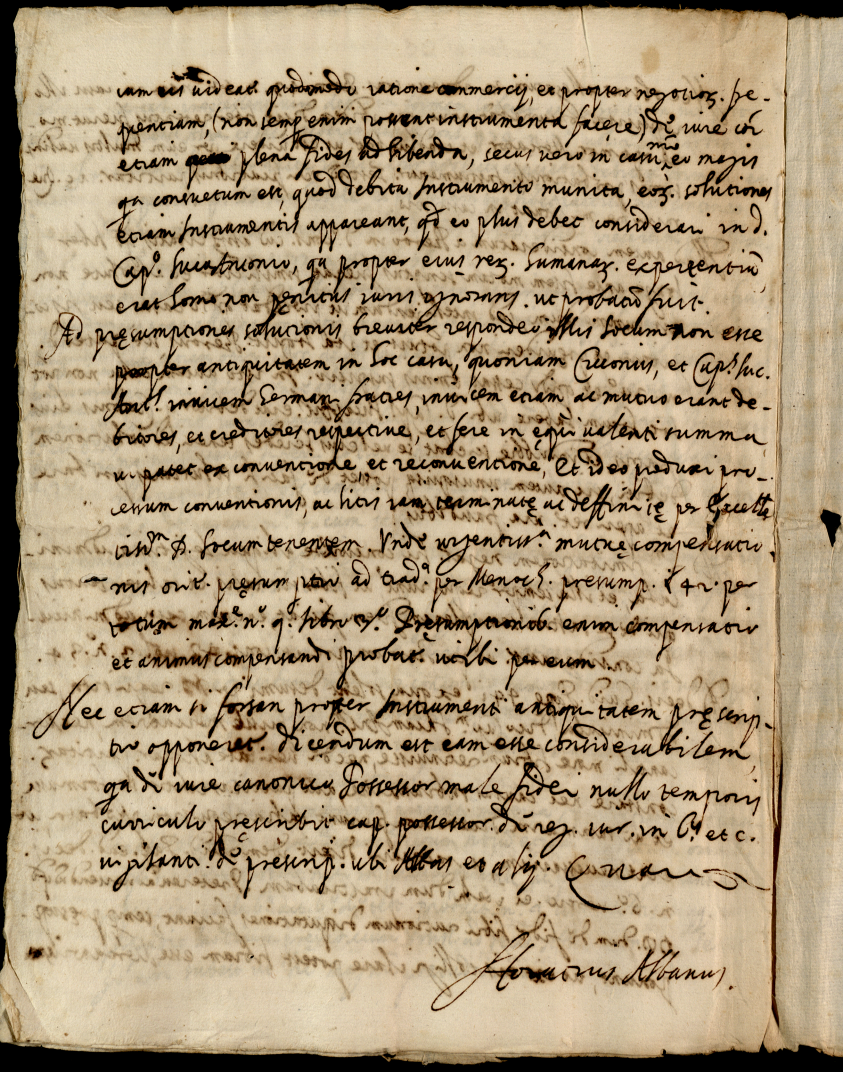 iam eis videat. quodmodi ratione commercij, et propter negotioꝝ. fre-
quentiam, (non semp enim possent instrumenta facere) de iure coi
etiam plena fides adhibenda, secus vero in casu nro eo magis
qa consuetum est, quod debita Instrumento munita, eoꝝ. solutiones
etiam Instrumentis appareant, qd eo plus debet considerari in d.
Cap.º Lucantonio, qa propter eius reꝝ. humanaꝝ. experientiã
erat homo non penitus iuris ignorans. ut probatũ fuit.
Ad pręsumptiones solutionis breviter respondeo illis locum non esse
propter antiquitatem in hoc casu, quoniam Civonius, et Cap.s Luc.
Ant.s invicem germani fratres, invicem etiam ac mutuo erant de-
bitores, et creditores respective, et fere in ęquivalenti summa
ut patet ex conventione et reconventione, Et ideo produxi pro-
cessum conventionis, ac litis iam terminatę ac deffinitę per Excell
D. locum tenentem. Unde urgentiss.a mutuę compensatio-
nis orit. pręsumptio ad trad.a per Menoch. presump. 142. per
totum max.e n.o 9. libro Presumptionib. enim compensatio
et animus compensandi probat. ut ibi per eum.
Nec etiam si forsan propter Instrumenti antiquitatem pręscrip-
tio opponeret. dicendum est eam esse considerabilem,
qa de iure canonico Possessor male fidei nullo temporis
curriculo pręscribit cap. possessor. de reg. iur. in 6.º et c.
vigilanti. de prescrip. ubi Abbas et alij.
Horatius Albanus.